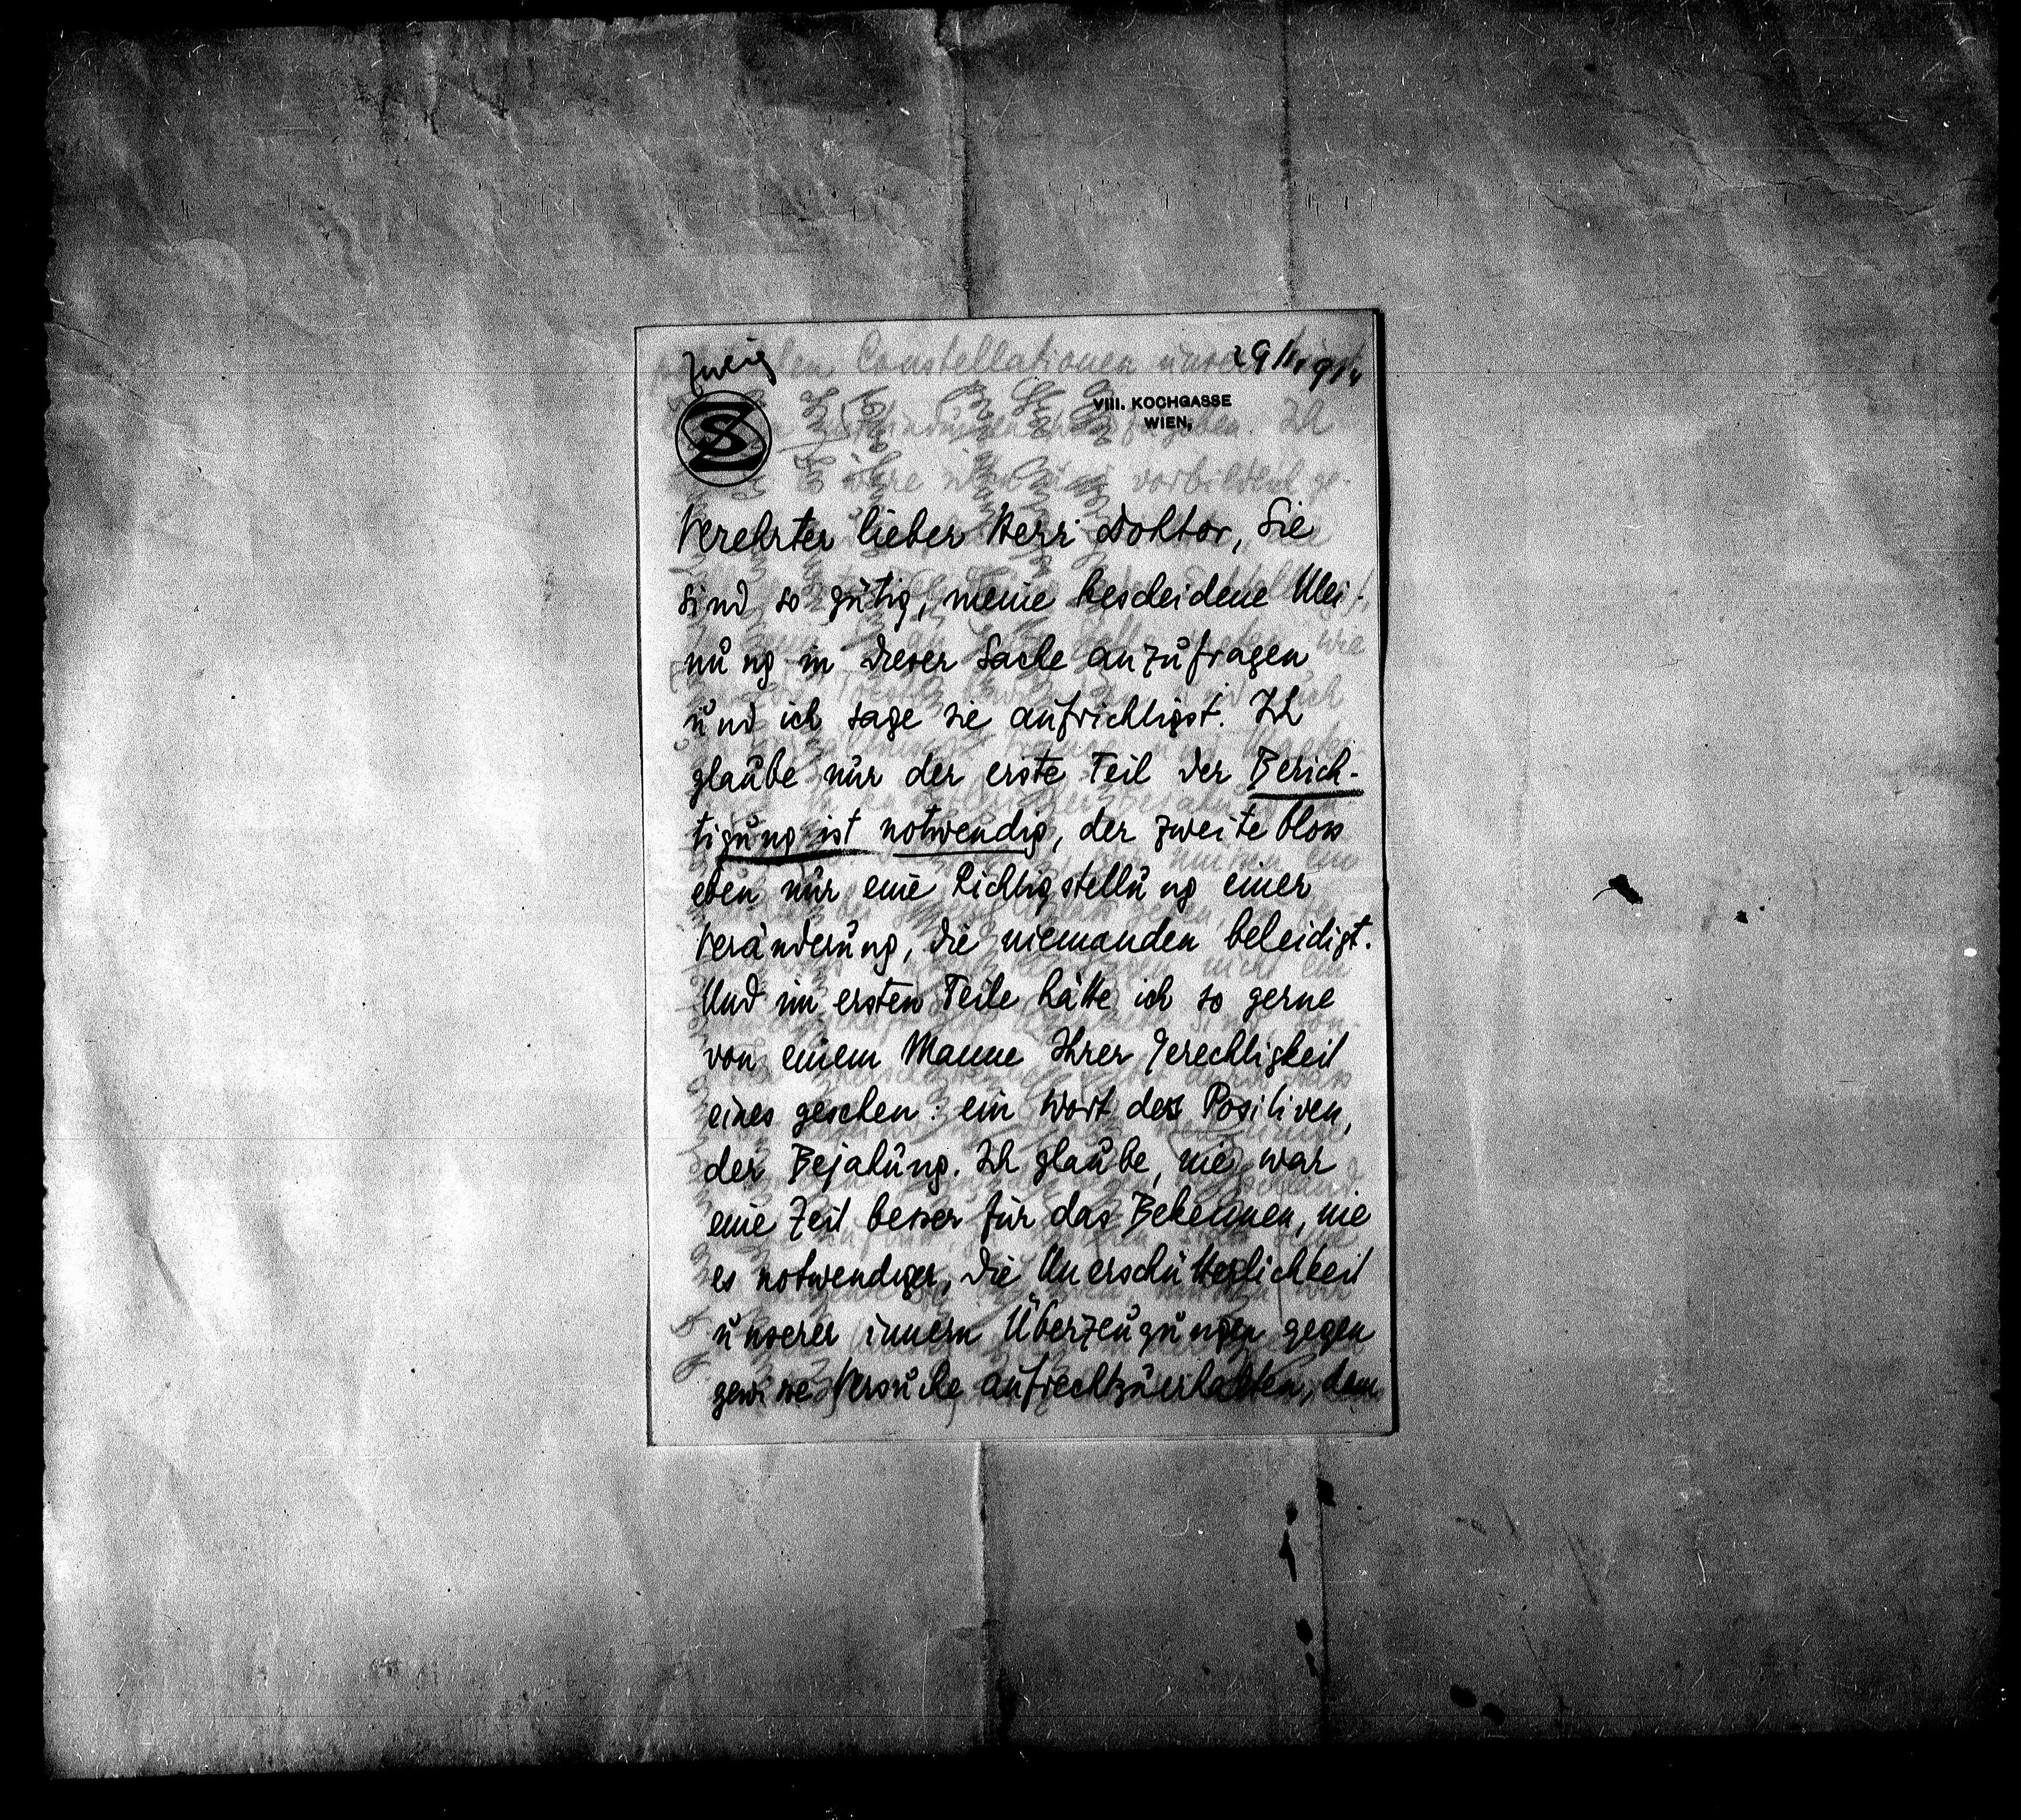 Zweig
SZ
VIII. KOCHGASSE
WIEN,
Verehrter lieber Herr Doktor, Sie
sind so gütig, meine bescheidene Mei-
nung in dieser Sache anzufragen
und ich sage sie aufrichtigst. Ich
glaube nur der erste Teil der Berich-
tigung ist notwendig, der zweite bloss
eben nur eine Richtigstellung einer
Veränderung, die niemanden beleidigt.
Und im ersten Teile hätte ich so gerne
von einem Manne Ihrer Gerechtigkeit
eines gesehen: ein Wort des Positiven,
der Bejahung. Ich glaube, nie war
eine Zeit besser für das Bekennen, nie
es notwendiger, die Unerschütterlichkeit
unserer innern Überzeugungen gegen
gewisse Versuche aufrechtzuerhalten, dem